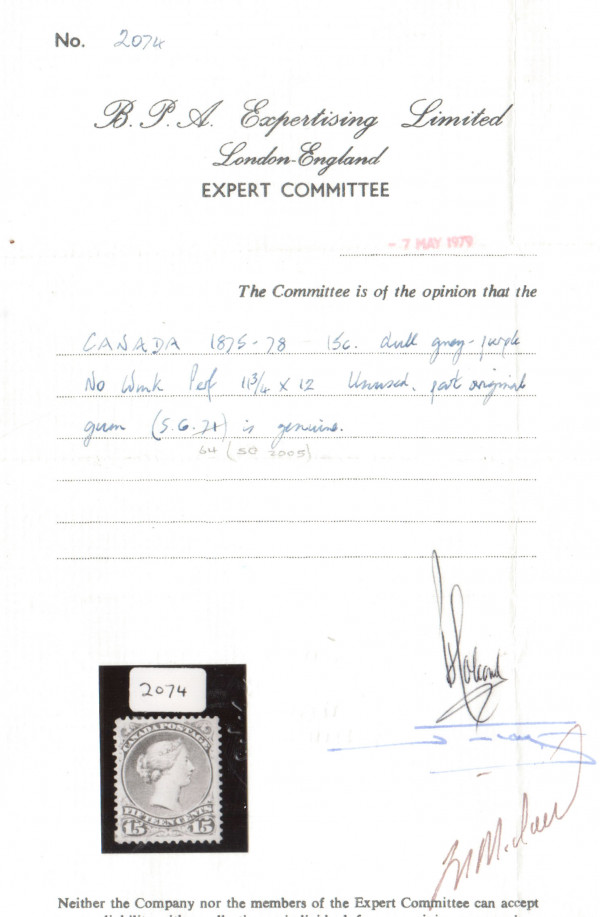 No. 2074
B.P.A. Expertising Limited
London-England
EXPERT COMMITTEE
- 7 MAY 1979
The Committee is of the opinion that the
CANADA 1875-78 15c. dull grey-purple
No Wmk Perf 11¾ x 12 Unused, part original
gum (S.G. ) is genuine.
64 (SG 2005)
2074
CANADA POSTAGE
FIFTEEN CENTS
15 15
Neither the Company nor the members of the Expert Committee can accept